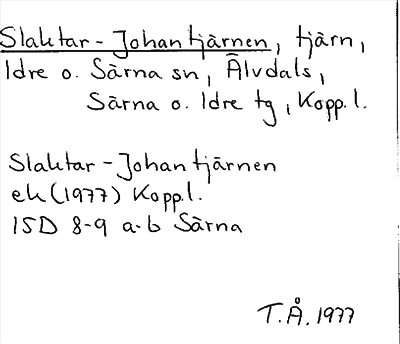 Slaktar-Johantjärnen, tjärn,
Idre o. Särna sn, Älvdals,
Särna o. Idre tg, Koppl.
Slaktar-Johantjärnen
ek (1977) Koppl.
15D 8-9 a-b Särna
T.Å. 1977